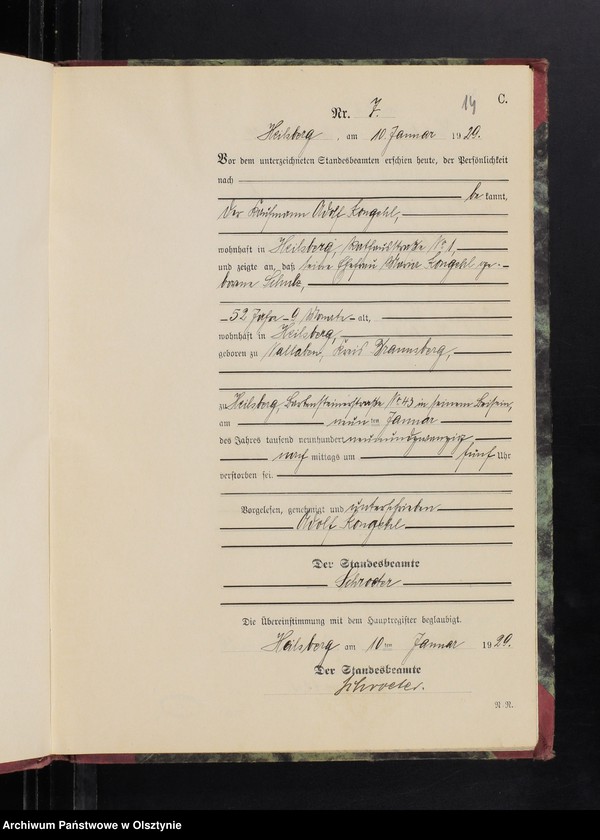 14 C.
Nr. 7.
Heilsberg, am 10. Januar 1929.
Vor dem unterzeichneten Standesbeamten erschien heute, der Persönlichkeit
nach
be kannt,
der Kaufmann Adolf Kongehl,
wohnhaft in Heilsberg, Rathausstraße No 1,
und zeigte an, daß seine Ehefrau Maria Kongehl ge-
borene Schulz,
52 Jahre 9 Monate alt,
wohnhaft in Heilsberg,
geboren zu Kreis Braunsberg,
zu Heilsberg, Bartensteinerstraße No 43 in seinem Beisein,
am neun ten Januar
des Jahres tausend neunhundert neunundzwanzig
nach mittags um fünf Uhr
verstorben sei.
Vorgelesen, genehmigt und unterschrieben
Adolf Kongehl
Der Standesbeamte
Schroeter
Die Übereinstimmung mit dem Hauptregister beglaubigt.
Heilsberg am 10 ten Januar 1929.
Der Standesbeamte
Schroeter.
N. N.
Archiwum Państwowe w Olsztynie